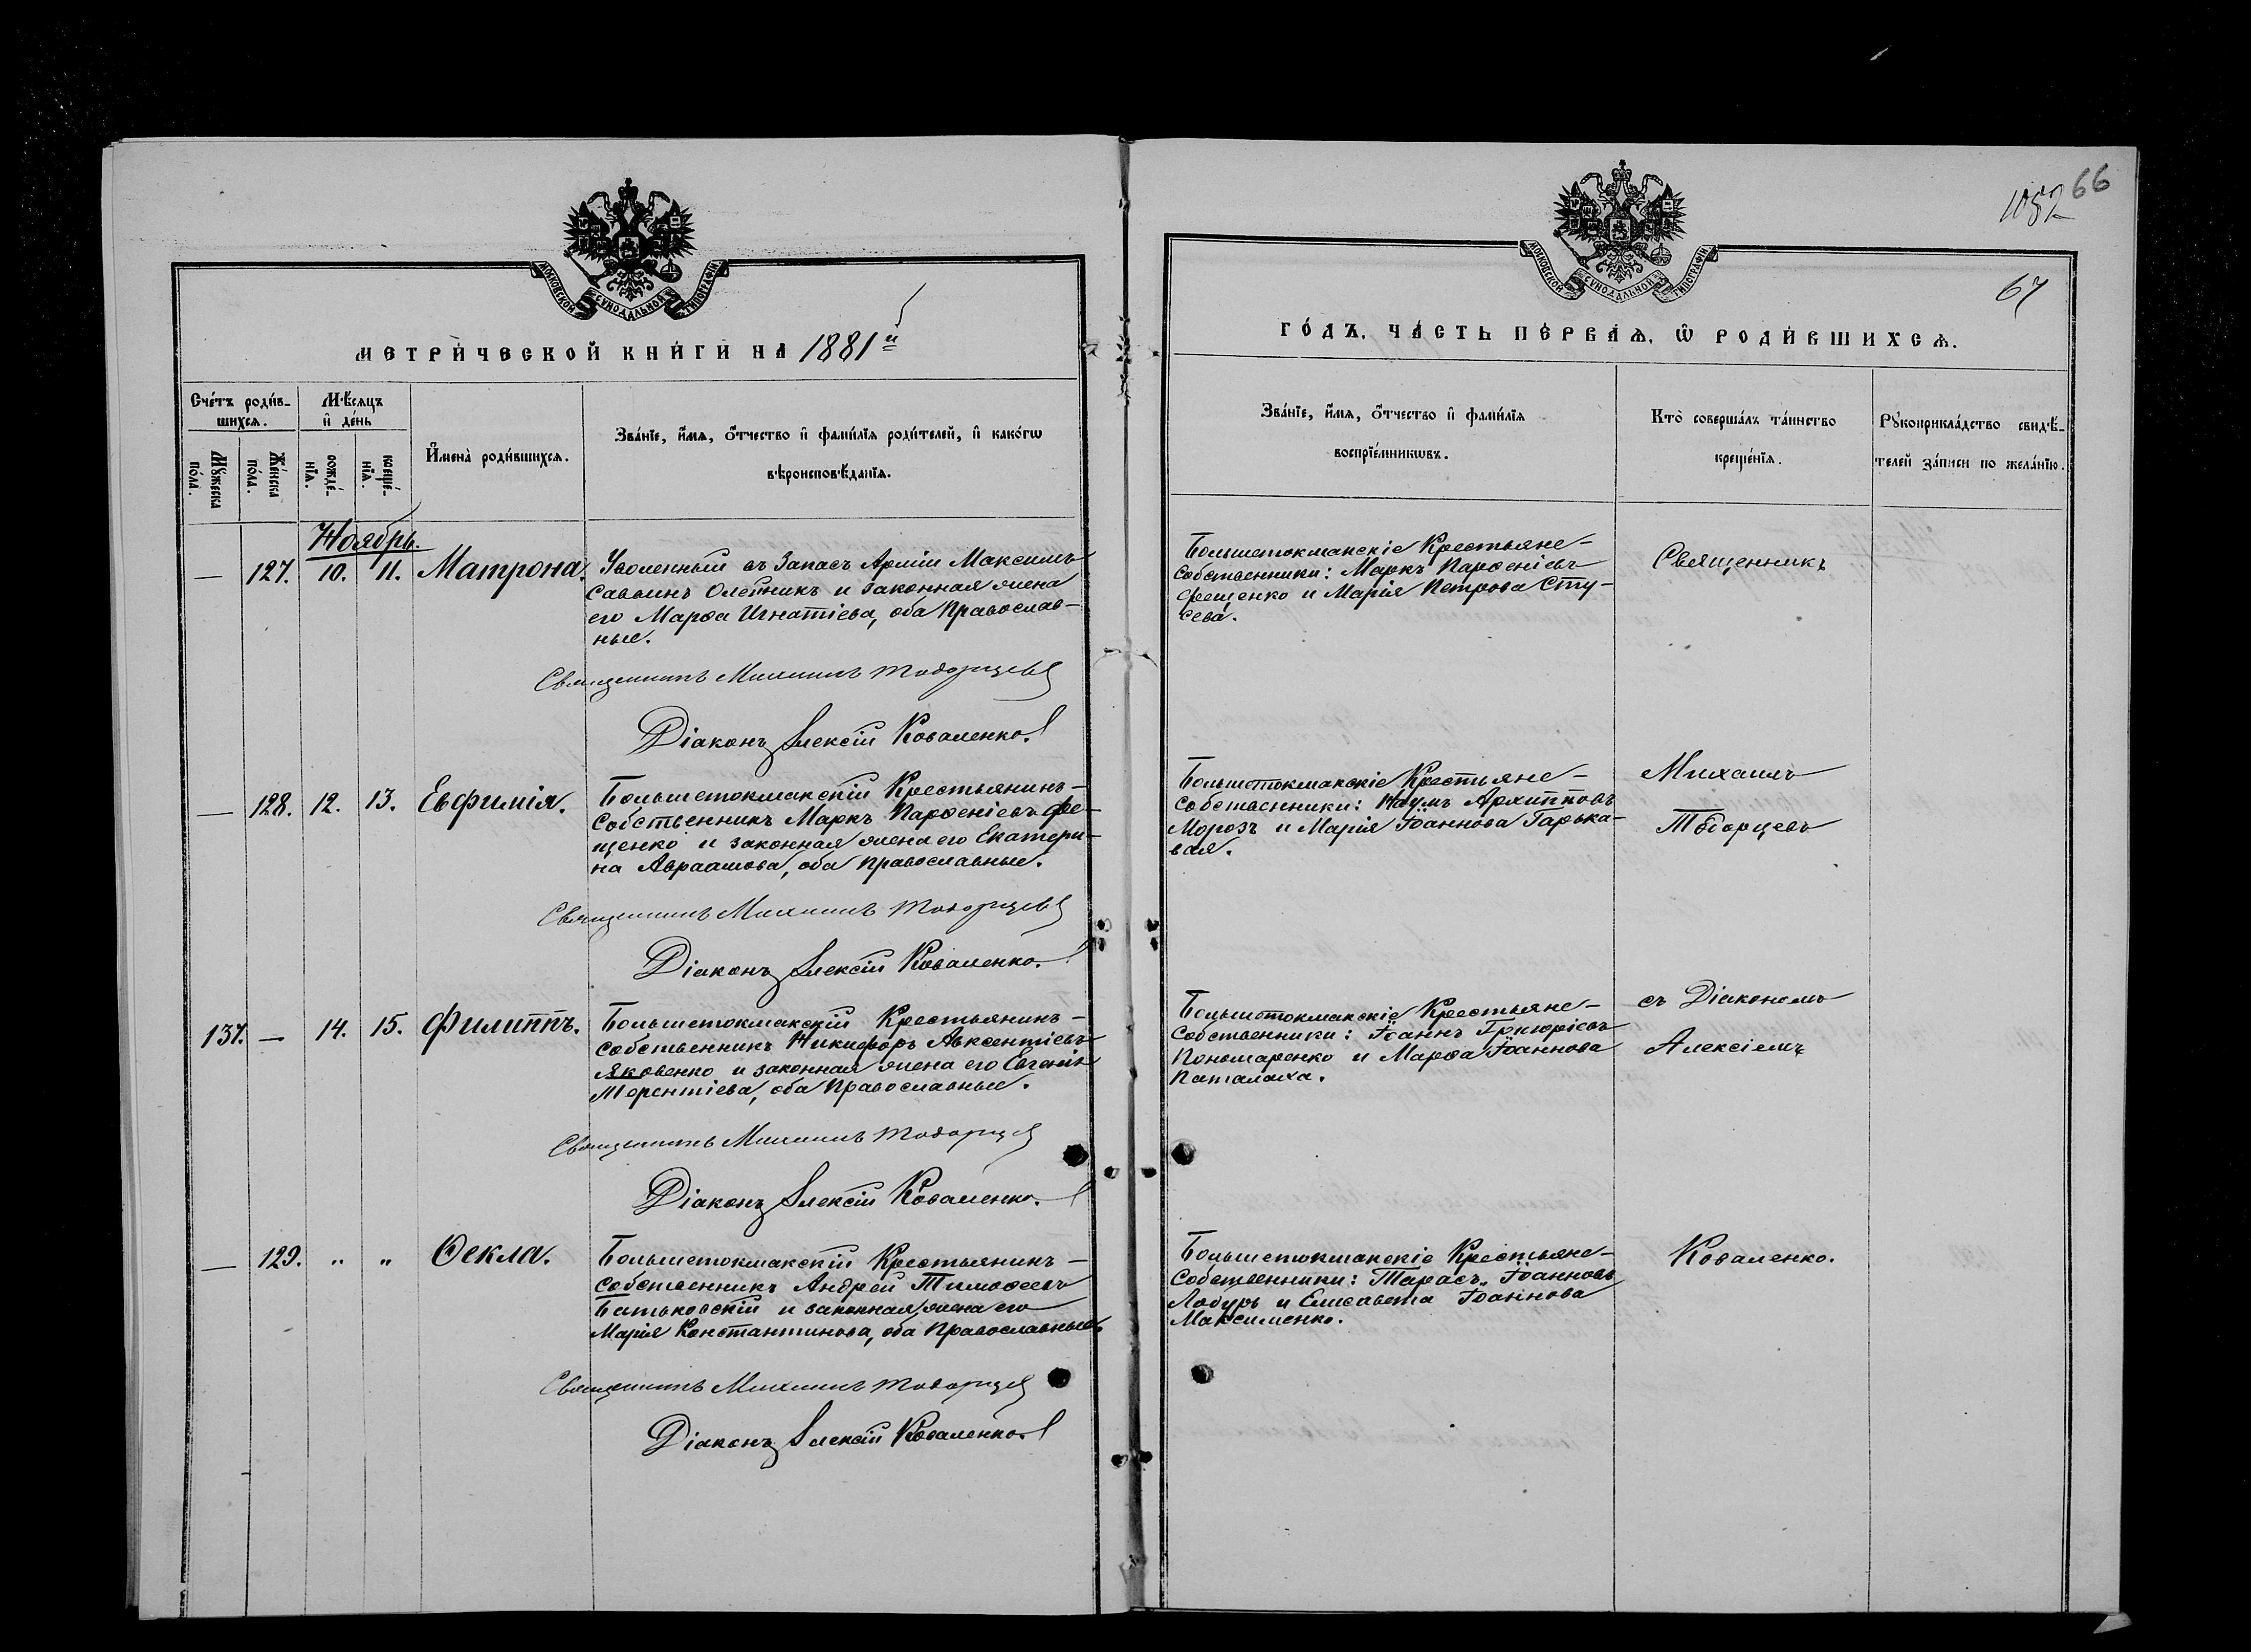 1052 66
67
МОСКОВСКОЙ СѴНОДАЛЬНОЙ ТИПОГРАФІИ
МОСКОВСКОЙ СѴНОДАЛЬНОЙ ТИПОГРАФІИ
МЕТРИ́ЧЕСКОЙ КНИ́ГИ НА 1881й
ГО́ДЪ, ЧА́СТЬ ПЕ́РВАѦ, Ѡ҆ РОДИ́ВШИХСѦ.
Сче́тъ роди́в-
шихсѧ.
Мѣ́сѧцъ
и҆ де́нь
Мꙋ́жеска
по́ла.
Же́нска
по́ла.
рожде́-
нїѧ.
креще́-
нїѧ.
И҆мена̀ роди́вшихсѧ.
Зва́нїе, и҆́мѧ, ѻ҆́тчество и҆ фами́лїѧ роди́телей, и҆ како́гѡ
вѣроисповѣ́данїѧ.
Зва́нїе, и҆́мѧ, ѻ҆́тчество и҆ фами́лїѧ
воспрїе́мникѡвъ.
Кто̀ соверша́лъ та́инство
креще́нїѧ.
Рꙋкоприкла́дство свидѣ́-
телей за́писи по жела́нїю.
Ноябрь.
— 127. 10. 11. Матрона.
Уволенный въ Запасъ Арміи Максимъ
Саввинъ Олейникъ и законная жена
его Марѳа Игнатіева, оба Православ-
ные.
Священникъ Михаилъ Тодорцевъ
Діаконъ Алексій Коваленко.
Большетокмакскіе Крестьяне-
Собственники: Маркъ Парѳеніевъ
Фещенко и Марія Петрова Сту-
сева.
Священникъ
— 128. 12. 13. Евфимія.
Большетокмакскій Крестьянинъ-
Собственникъ Маркъ Парѳеніевъ Фе-
щенко и законная жена его Екатери-
на Авраамова, оба Православные.
Священникъ Михаилъ Тодорцевъ
Діаконъ Алексій Коваленко.
Большетокмакскіе Крестьяне-
Собственники: Наумъ Архипповъ
Морозъ и Марія Іоаннова Гарька-
вая.
Михаилъ
Тодорцевъ
137. — 14. 15. Филиппъ.
Большетокмакскій Крестьянинъ-
Собственникъ Никифоръ Авксентіевъ
Яковенко и законная жена его Евгенія
Терентіева, оба Православные.
Священникъ Михаилъ Тодорцевъ
Діаконъ Алексій Коваленко.
Большетокмакскіе Крестьяне-
Собственники: Іоаннъ Григоріевъ
Пономаренко и Марѳа Іоаннова
Паталаха.
съ Діакономъ
Алексіемъ
— 129. „ „ Ѳекла.
Большетокмакскій Крестьянинъ-
Собственникъ Андрей Тимоѳеевъ
Батьковскій и законная жена его
Марія Константинова, оба Православные.
Священникъ Михаилъ Тодорцевъ
Діаконъ Алексій Коваленко
Большетокмакскіе Крестьяне-
Собственники: Тарасъ Іоанновъ
Лобуръ и Елисавета Іоаннова
Максименко.
Коваленко.